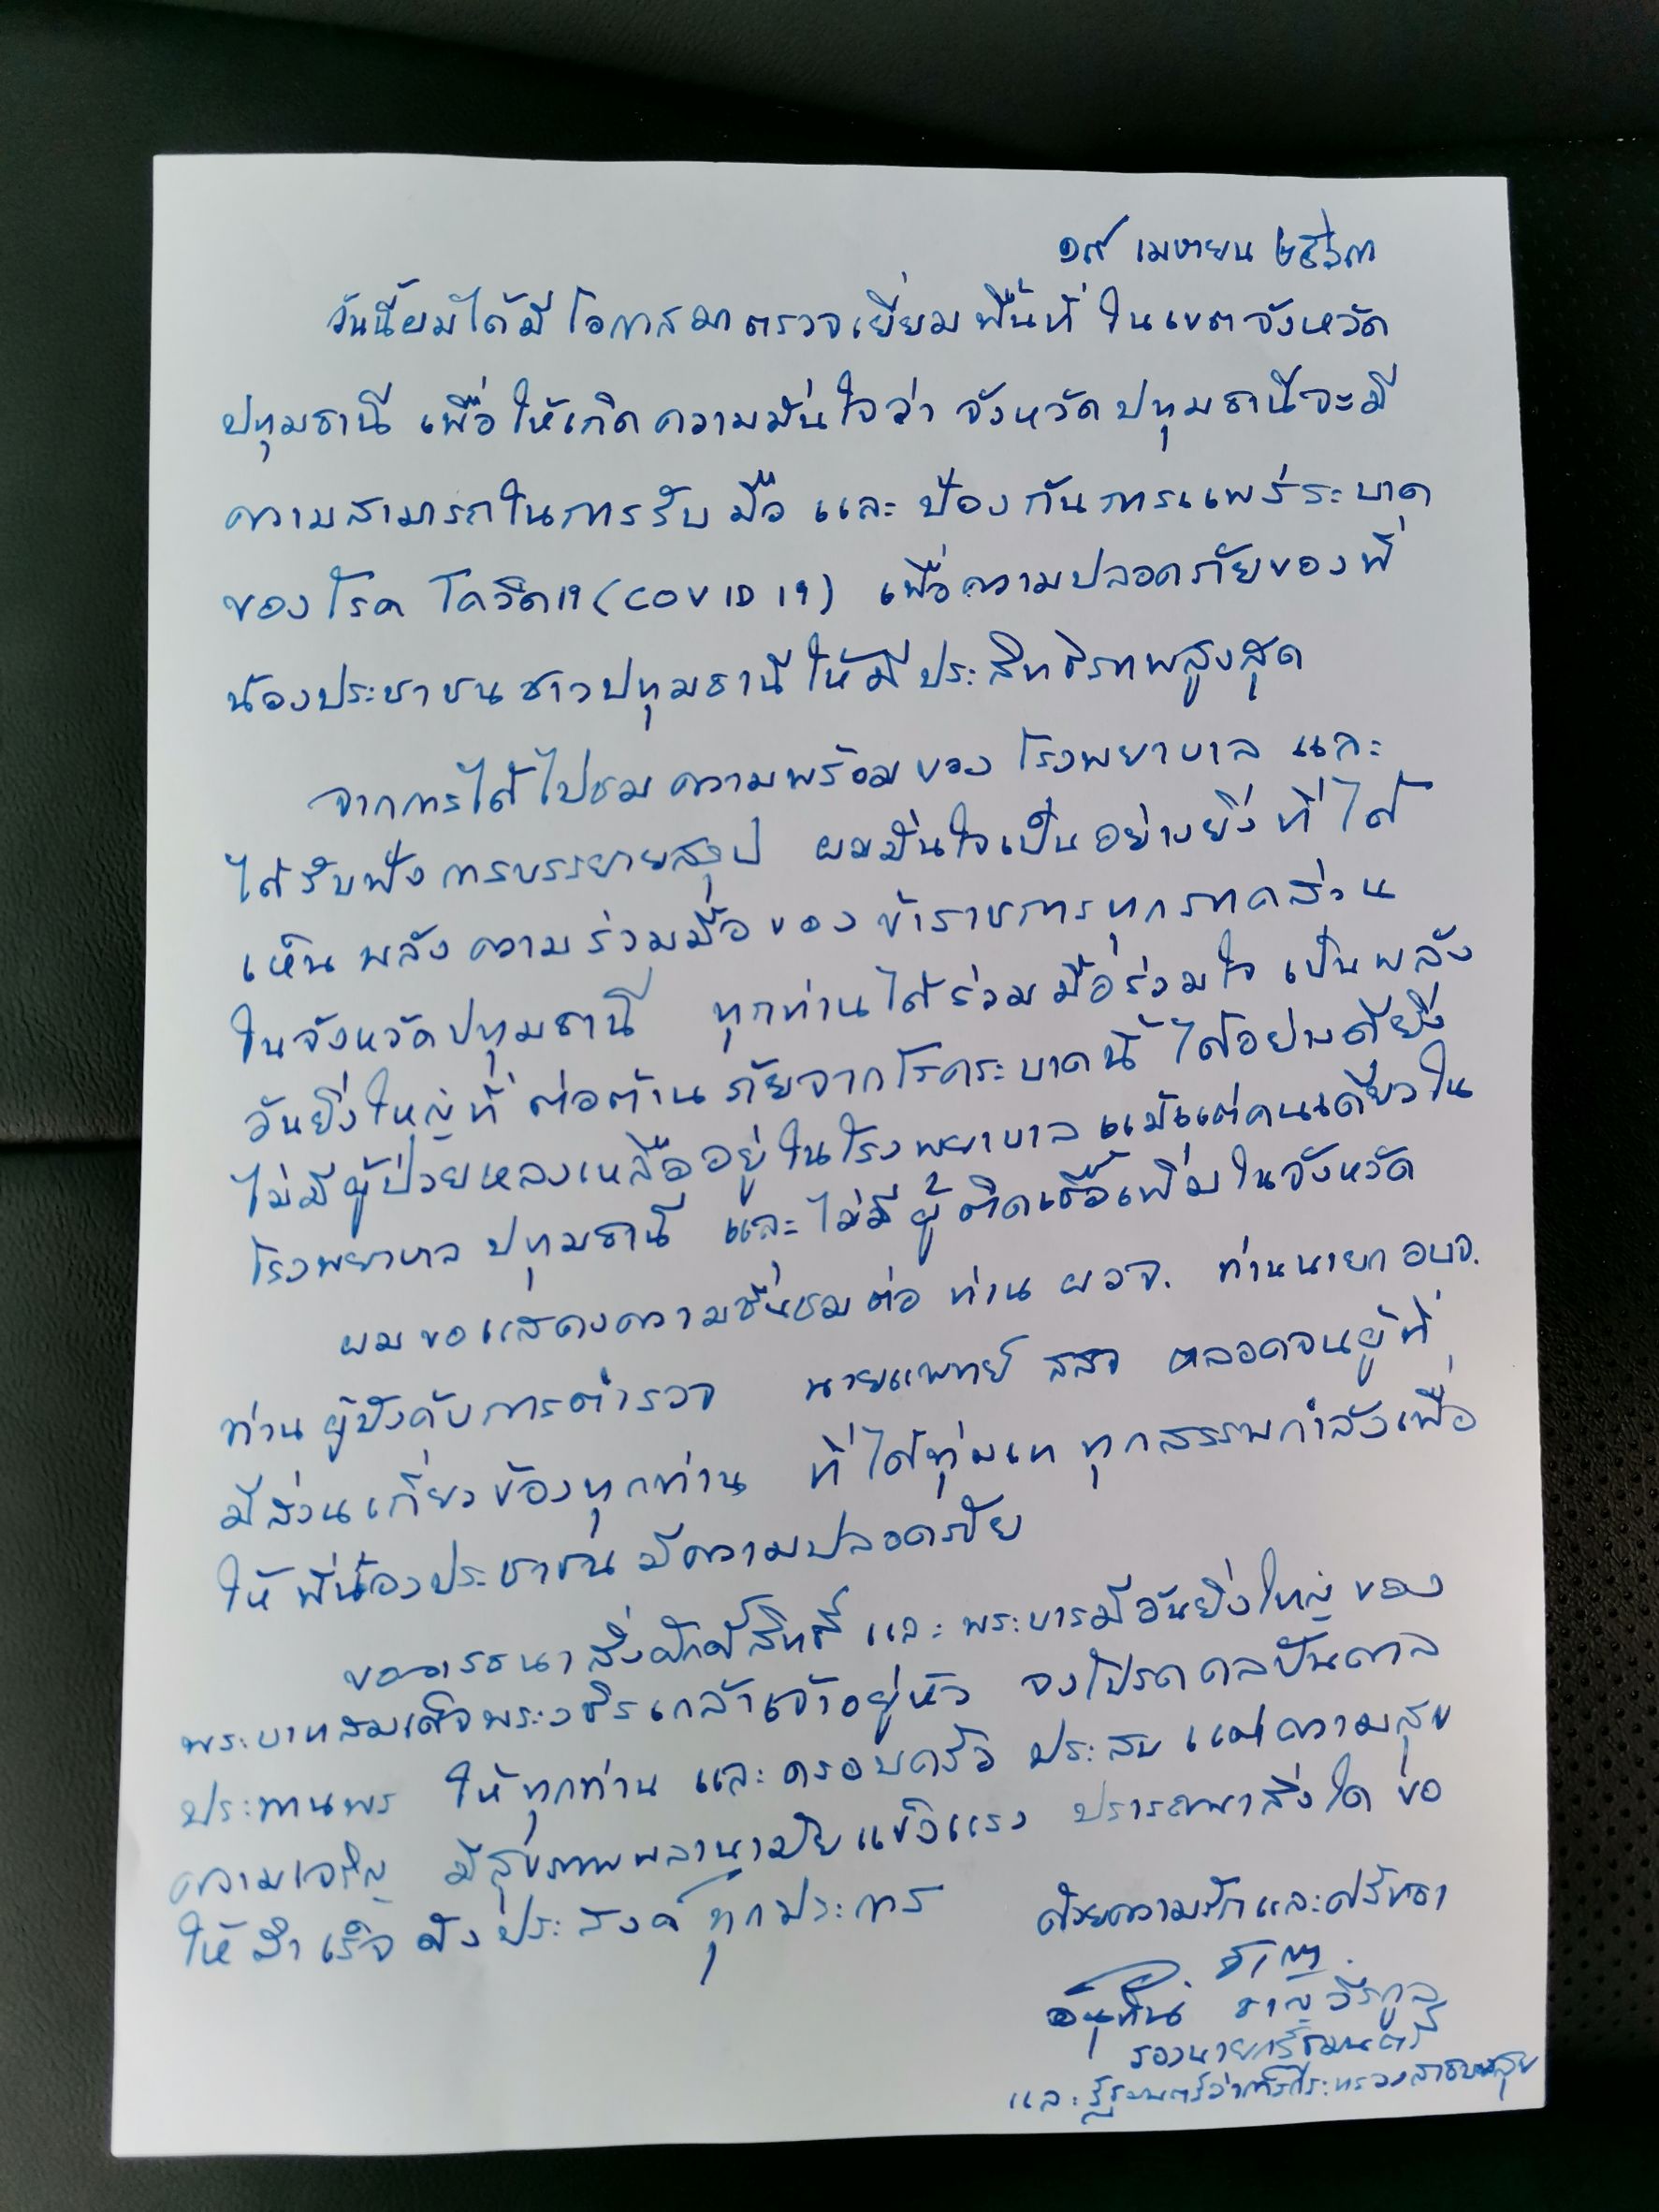 ๑๙ เมษายน ๒๕๖๓
วันนี้ผมได้มีโอกาสมาตรวจเยี่ยมพื้นที่ ในเขตจังหวัด
ปทุมธานี เพื่อให้เกิดความมั่นใจว่า จังหวัดปทุมธานีจะมี
ความสามารถในการรับมือ และ ป้องกันการแพร่ระบาด
ของโรค โควิด19 (COVID 19) เพื่อความปลอดภัยของพี่
น้องประชาชนชาวปทุมธานีให้มีประสิทธิภาพสูงสุด
จากการได้ไปชมความพร้อมของ โรงพยาบาล และ
ได้รับฟังการบรรยายสรุป ผมมั่นใจเป็นอย่างยิ่งที่ได้
เห็นพลังความร่วมมือของข้าราชการทุกภาคส่วน
ในจังหวัดปทุมธานี ทุกท่านได้ร่วมมือร่วมใจ เป็นพลัง
อันยิ่งใหญ่ที่ต่อต้านภัยจากโรคระบาดนี้ ได้อย่างดียิ่ง
ไม่มีผู้ป่วยหลงเหลืออยู่ในโรงพยาบาล แม้แต่คนเดียวใน
โรงพยาบาล ปทุมธานี และไม่มีผู้ติดเชื้อเพิ่มในจังหวัด
ผมขอแสดงความชื่นชมต่อ ท่าน ผวจ. ท่านนายก อบจ.
ท่านผู้บังคับการตำรวจ นายแพทย์ สสจ ตลอดจนผู้ที่
มีส่วนเกี่ยวข้องทุกท่าน ที่ได้ทุ่มเท ทุกสรรพกำลังเพื่อ
ให้พี่น้องประชาชน มีความปลอดภัย
ขออาราธนาสิ่งศักดิ์สิทธิ์ และ พระบารมีอันยิ่งใหญ่ ของ
พระบาทสมเด็จพระวชิรเกล้าเจ้าอยู่หัว จงโปรดดลบันดาล
ประทานพร ให้ทุกท่าน และครอบครัว ประสบแต่ความสุข
ความเจริญ มีสุขภาพพลานามัยแข็งแรง ปรารถนาสิ่งใด ขอ
ให้สำเร็จดังประสงค์ทุกประการ
ด้วยความรักและศรัทธา
อนุทิน ชาญวีรกูล
รองนายกรัฐมนตรี
และรัฐมนตรีว่าการกระทรวงสาธารณสุข